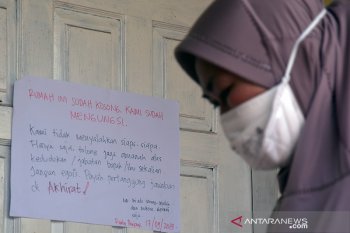 RUMAH INI SUDAH KOSONG, KAMI SUDAH
MENGUNGSI.
Kami tidak menyalahkan siapa-siapa
Hanya saja, tolong jaga amanah atas
kedudukan / jabatan bapak / ibu sekalian
jangan egois. Banyak pertanggung jawaban
di Akhirat!
17/09/2019
ANTARANEWS
.com